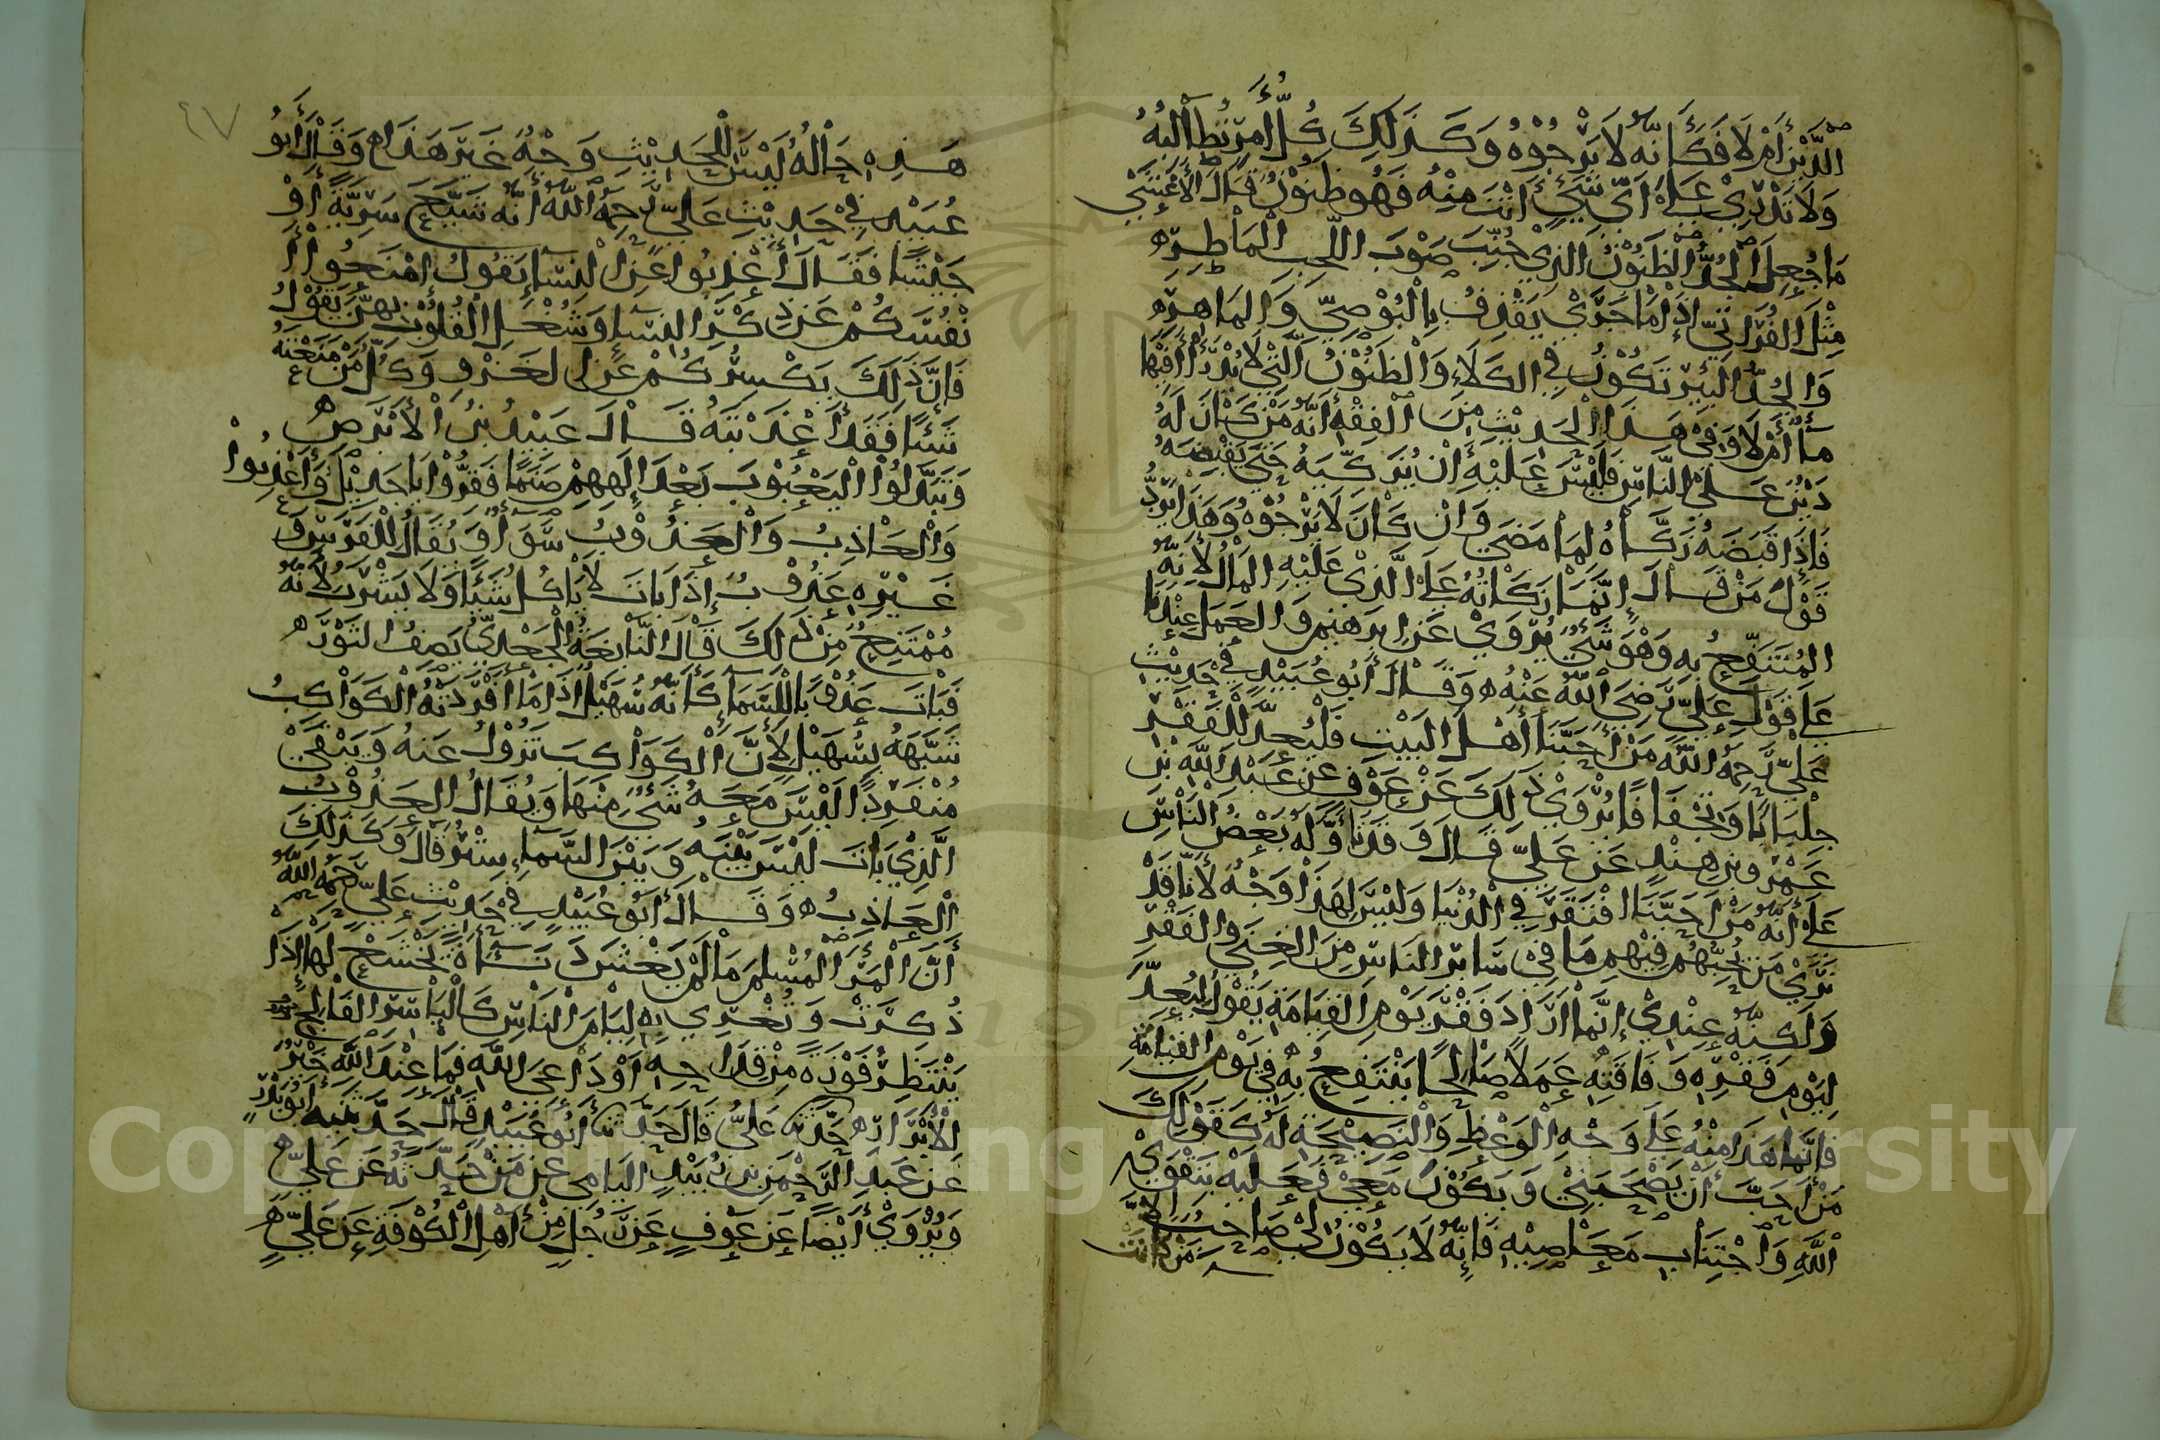 الدَّيْنُ أَمْ لَا فَكَأَنَّهُ لَا يَرْجُوْهُ وَكَذَلِكَ كُلُّ أَمْرٍ تُطَالِبُهُ
وَلَا تَدْرِيْ عَلَى أَيِّ شَيْءٍ أَنْتَ مِنْهُ فَهُوَ ظَنُوْنٌ قَالَ الأَعْشَى
مَا جُعِلَ الجُدُّ الظَّنُوْنُ الَّذِيْ جُنِّبَ صَوْبَ اللَّجِبِ الْمَاطِرِ ه
مِثْلَ الفُرَاتِيِّ إِذَا مَا جَرَى يَقْذِفُ بِالْبُوْصِيِّ وَالمَاهِرِ ه
وَالجُدُّ البِئْرُ تَكُوْنُ فِي الكَلَاءِ وَالظَّنُوْنُ الَّتِيْ لَا يُدْرَى أَفِيْهَا
مَآءٌ أَمْ لَا وَفِيْ هَذَا الْحَدِيْثِ مِنَ الْفِقْهِ أَنَّهُ مَنْ كَانَ لَهُ
دَيْنٌ عَلَى النَّاسِ فَلَيْسَ عَلَيْهِ أَنْ يُزَكِّيَهُ حَتَّى يَقْبِضَهُ
فَإِذَا قَبَضَهُ زَكَّاهُ لِمَا مَضَى وَانْ كَانَ لَا يَرْجُوْهُ وَهَذَا يَرُدُّ
قَوْلَ مَنْ قَالَ إِنَّمَا زَكَاتُهُ عَلَى الَّذِيْ عَلَيْهِ المَالُ لِأَنَّهُ
المُنْتَفِعُ بِهِ وَهْوَ شَيْءٌ يُرْوَيْ عَنِ ابْرَهِيْمَ وَالْعَمَلُ عِنْدَنَا
عَلَى قَوْلِ عَلِيٍّ رَضِيَ اللَّهُ عَنْهُ ه وَقَالَ أَبُو عُبَيْدٍ فِيْ حَدِيْثِ
عَلِيٍّ رَحِمَهُ اللَّهُ مَنْ أَحَبَّنَا أَهْلَ البَيْتِ فَلْيُعِدَّ لِلْفَقْرِ
جِلْبَابًا وَتَجْفَافًا يُرْوَيْ ذَلِكَ عَنْ عَوْفٍ عَنْ عَبْدِ اللَّهِ بْنِ
عَمْرِو بْنِ هِنْدٍ عَنْ عَلِيٍّ قَالَ وَقَدْ تَأَوَّلَهُ بَعْضُ النَّاسِ
عَلَى أَنَّهُ مَنْ أَحَبَّنَا افْتَقَرَ فِي الدُّنْيَا وَلَيْسَ لِهَذَا وَجْهٌ لأَنَّا قَدْ
نَرَيْ مَنْ يُحِبُّهُمْ فِيْهِمْ مَا فِيْ سَائِرِ النَّاسِ مِنَ الغِنَى وَالفَقْرِ
وَلَكِنَّهُ عِنْدِيْ إِنَّمَا أَرَادَ فَقْرَ يَوْمِ القِيَامَةِ يَقُوْلُ لِيُعِدَّ
لِيَوْمِ فَقْرِهِ وَفَاقَتِهِ عَمَلًا صَالِحًا يَنْتَفِعُ بِهِ فِيْ يَوْمِ القِيَامَةِ
فَإِنَّمَا هَذَا مِنْهُ عَلَى وَجْهِ الْوَعْظِ وَالْنَصِيْحَةِ لَهُ كَقَوْلِكَ
مَنْ أَحَبَّ أَنْ يَصْحَبَنِيْ وَيَكُوْنَ مَعِيْ فَعَلَيْهِ بِتَقْوَيْ
اللَّهِ وَاجْتِنَابِ مَعَاصِيْهِ فَإِنَّهُ لَا يَكُوْنُ لِيْ صَاحِبًا إِلَّا مَنْ كَانَتْ
٤٧
هَذِهِ حَالُهُ لَيْسَ لِلْحَدِيْثِ وَجْهٌ غَيْرَ هَذَا ه وَقَالَ أَبُو
عُبَيْدٍ فِيْ حَدِيْثِ عَلِيٍّ رَحِمَهُ اللَّهُ أَنَّهُ شَيَّعَ سَرِيَّةً أَوْ
جَيْشًا فَقَالَ أَعْذِبُوا عَنِ النِّسَآءِ يَقُولُ إِمْنَعُوْا
أَنْفُسَكُمْ عَنْ ذِكْرِ النِّسَآءِ وَشُغْلِ القُلُوْبِ بِهِنَّ يَقُوْلُ
فَإِنَّ ذَلِكَ يَكْسِرُكُمْ عَنِ الْغَزْوِ وَكُلُّ مَنْ مَنَعْتَهُ
شَيْئًا فَقَدْ أَعْذَبْتَهُ قَالَ عَبِيْدُ بْنُ الأَبْرَصِ ه
وَتَبَدَّلُوْا الْيَعْبُوْبَ بَعْدَ إِلَهِهِمْ صَنَمًا فَقِرُّوْا يَا جَدِيْلَ وَأَعْذِبُوا
وَالْعَاذِبُ وَالْعَذُوْبُ سَوَآءٌ وَيُقَالُ لِلْفَرَسِ وَ
غَيْرِهِ عَذُوْبٌ إِذَا بَاتَ لَا يَأْكُلُ شَيْئًا وَلَا يَشْرَبُ لِأَنَّهُ
مُمْتَنِعٌ مِنْ ذَلِكَ قَالَ النَّابِغَةُ الْجَعْدِيُّ يَصِفُ الثَوْرَ ه
فَبَاتَ عَذُوْبًا لِلْسَّمَآءِ كَأَنَّهُ سُهَيْلٌ إِذَا مَا أَفْرَدَتْهُ الْكَوَاكِبُ
شَبَّهَهُ بِسُهَيْلٍ لِأَنَّ الْكَوَاكِبَ تَزُوْلُ عَنْهُ وَيَبْقَيْ
مُنْفَرِدًا لَيْسَ مَعَهُ شَيْءٌ مِنْهَا وَيُقَالُ العَذُوْبُ
الَّذِيْ بَاتَ لَيْسَ بَيْنَهُ وَبَيْنَ السَّمَآءِ سِتْرٌ قَالَ وَكَذَلِكَ
الْعَاذِبُ ه وَقَالَ أَبُو عُبَيْدٍ فِيْ حَدِيْثِ عَلِيٍّ رَحِمَهُ اللَّهُ
أَنَّ الْمَرْءَ الْمُسْلِمَ مَا لَمْ يَغْشَ دَنَآءَةً يَخْشَعُ لَهَا إِذَا
ذُكِرَتْ وَتُغْرِي بِهِ لِئَامَ الْنَّاسِ كَالْيَاسِرِ الفَالِجِ
يَنْتَظِرُ فَوْزَةً مِنْ قِدَاحِهِ أَوْ دَاعِيَ اللَّهِ فَمَا عِنْدَ اللَّهِ خَيْرٌ
لِلْأَبْرَارِ ه حَدَّثَنَا عَلِيٌّ قَالَ حَدَّثَنَا أَبُو عُبَيْدٍ قَالَ حَدَّثَنِيْهِ أَبُو بَدْرٍ
عَنْ عَبْدِ الرَّحْمَنِ بْنِ زُبَيْدٍ اليَامِي عَنْ مَنْ حَدَّثَهُ عَنْ عَلِيٍّ ه
وَيُرْوَيْ أَيْضًا عَنْ عَوْفٍ عَنْ رَجُلٍ مِنْ أَهْلِ الْكُوْفَةِ عَنْ عَلِيٍّ ه